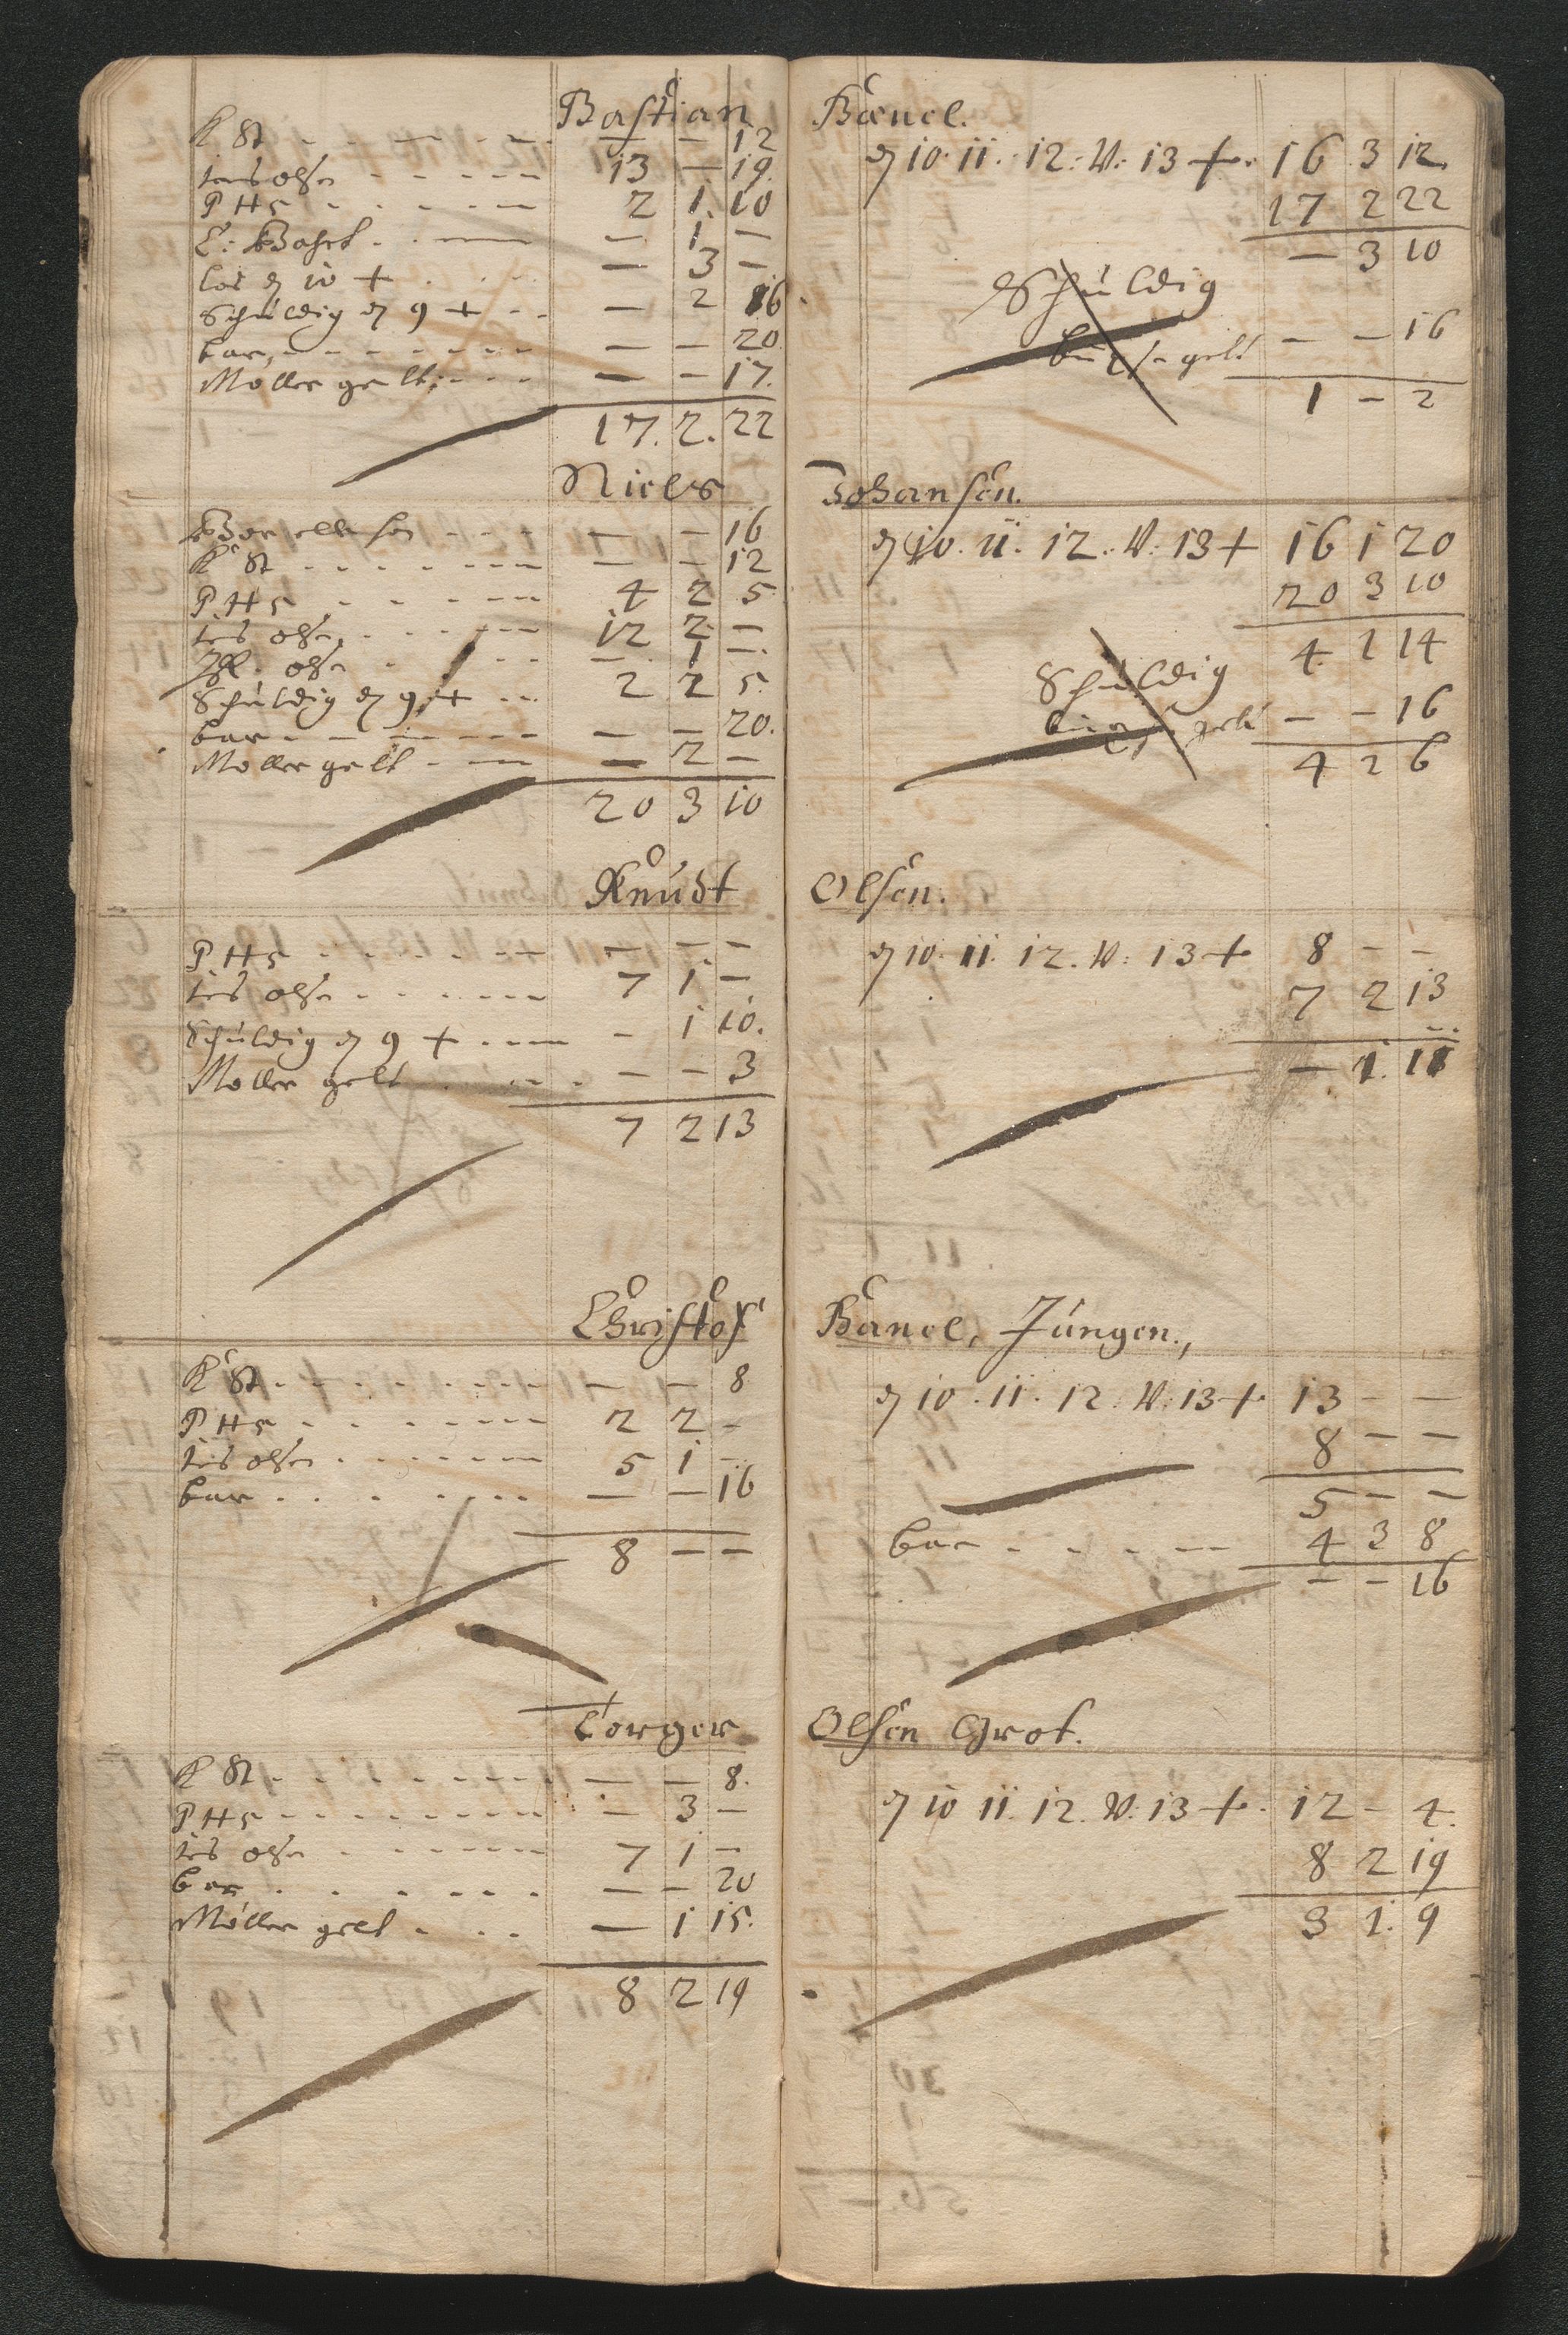 Bastian Banel.
K St - - 12
tes olsen 13 - 19.
P H s 2 1. 10
- 1 -
10 + - 3 -
Schuldig 9 + - 2 16
bar - - 20
Moller gelt - - 17.
17. 2. 22
10. 11. 12. V. 13 + 16 3 12
17 2 22
- 3 10
Schuldig
buchse gelt - - 16
1 - 2
Niels Johansen.
- - 16
K St - - 12
P H s 4 2 5
tes olsen 12 2 -
olsen - 1 -
Schuldig 9 + 2 2 5
bar - - 20.
Moller gelt - 2 -
20 3 10
10. 11. 12. V. 13 + 16 1 20
20 3 10
4 1 14
Schuldig
buchse gelt - - 16
4 2 6
Knudt Olsen.
P H s - - -
tes olsen 7 1 -
Schuldig 9 + - 1 10.
Moller gelt - - 3
7 2 13
10. 11. 12. V. 13 + 8 - -
7 2 13
- 1. 11
Christof Banel, Jungen.,
K St - - 8
P H s 2 2 -
tes olsen 5 1 -
bar - - 16
8 - -
10. 11. 12. V. 13 + 13 - -
8 - -
5 - -
bar 4 3 8
- - 16
Torger Olsen Grot.
K St - - 8.
P H s - 3 -
tes olsen 7 1 -
bar - - 20
Moller gelt - 1 15.
8 2 19
10 11. 12. V. 13 + 12 - 4.
8 2 19
3 1. 9